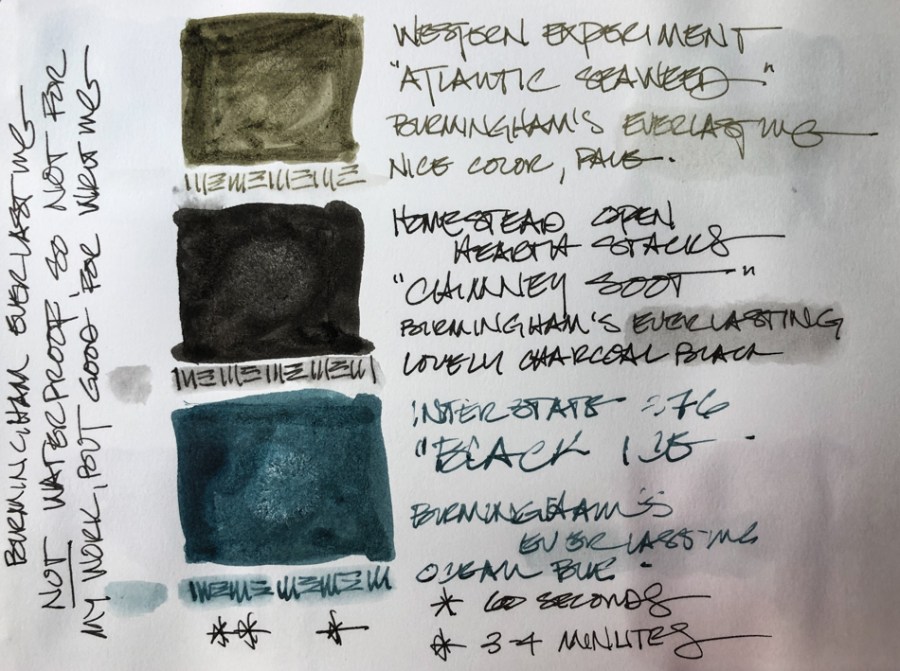 WESTERN EXPERIMENT
"ATLANTIC SEAWEED"
BIRMINGHAM'S EVERLASTING
NICE COLOR, PALE.
HOMESTEAD OPEN
HEARTH STACKS
"CHIMNEY SOOT"
BIRMINGHAM'S EVERLASTING
LOVELY CHARCOAL BLACK
INTERSTATE 376
"BLACK ICE".
BIRMINGHAM'S
EVERLASTING
OCEAN BLUE
* 60 SECONDS
* 3-4 MINUTES
** *
BIRMINGHAM EVERLASTING
NOT WATERPROOF, SO NOT FOR
MY WORK, BUT GOOD FOR WRITING